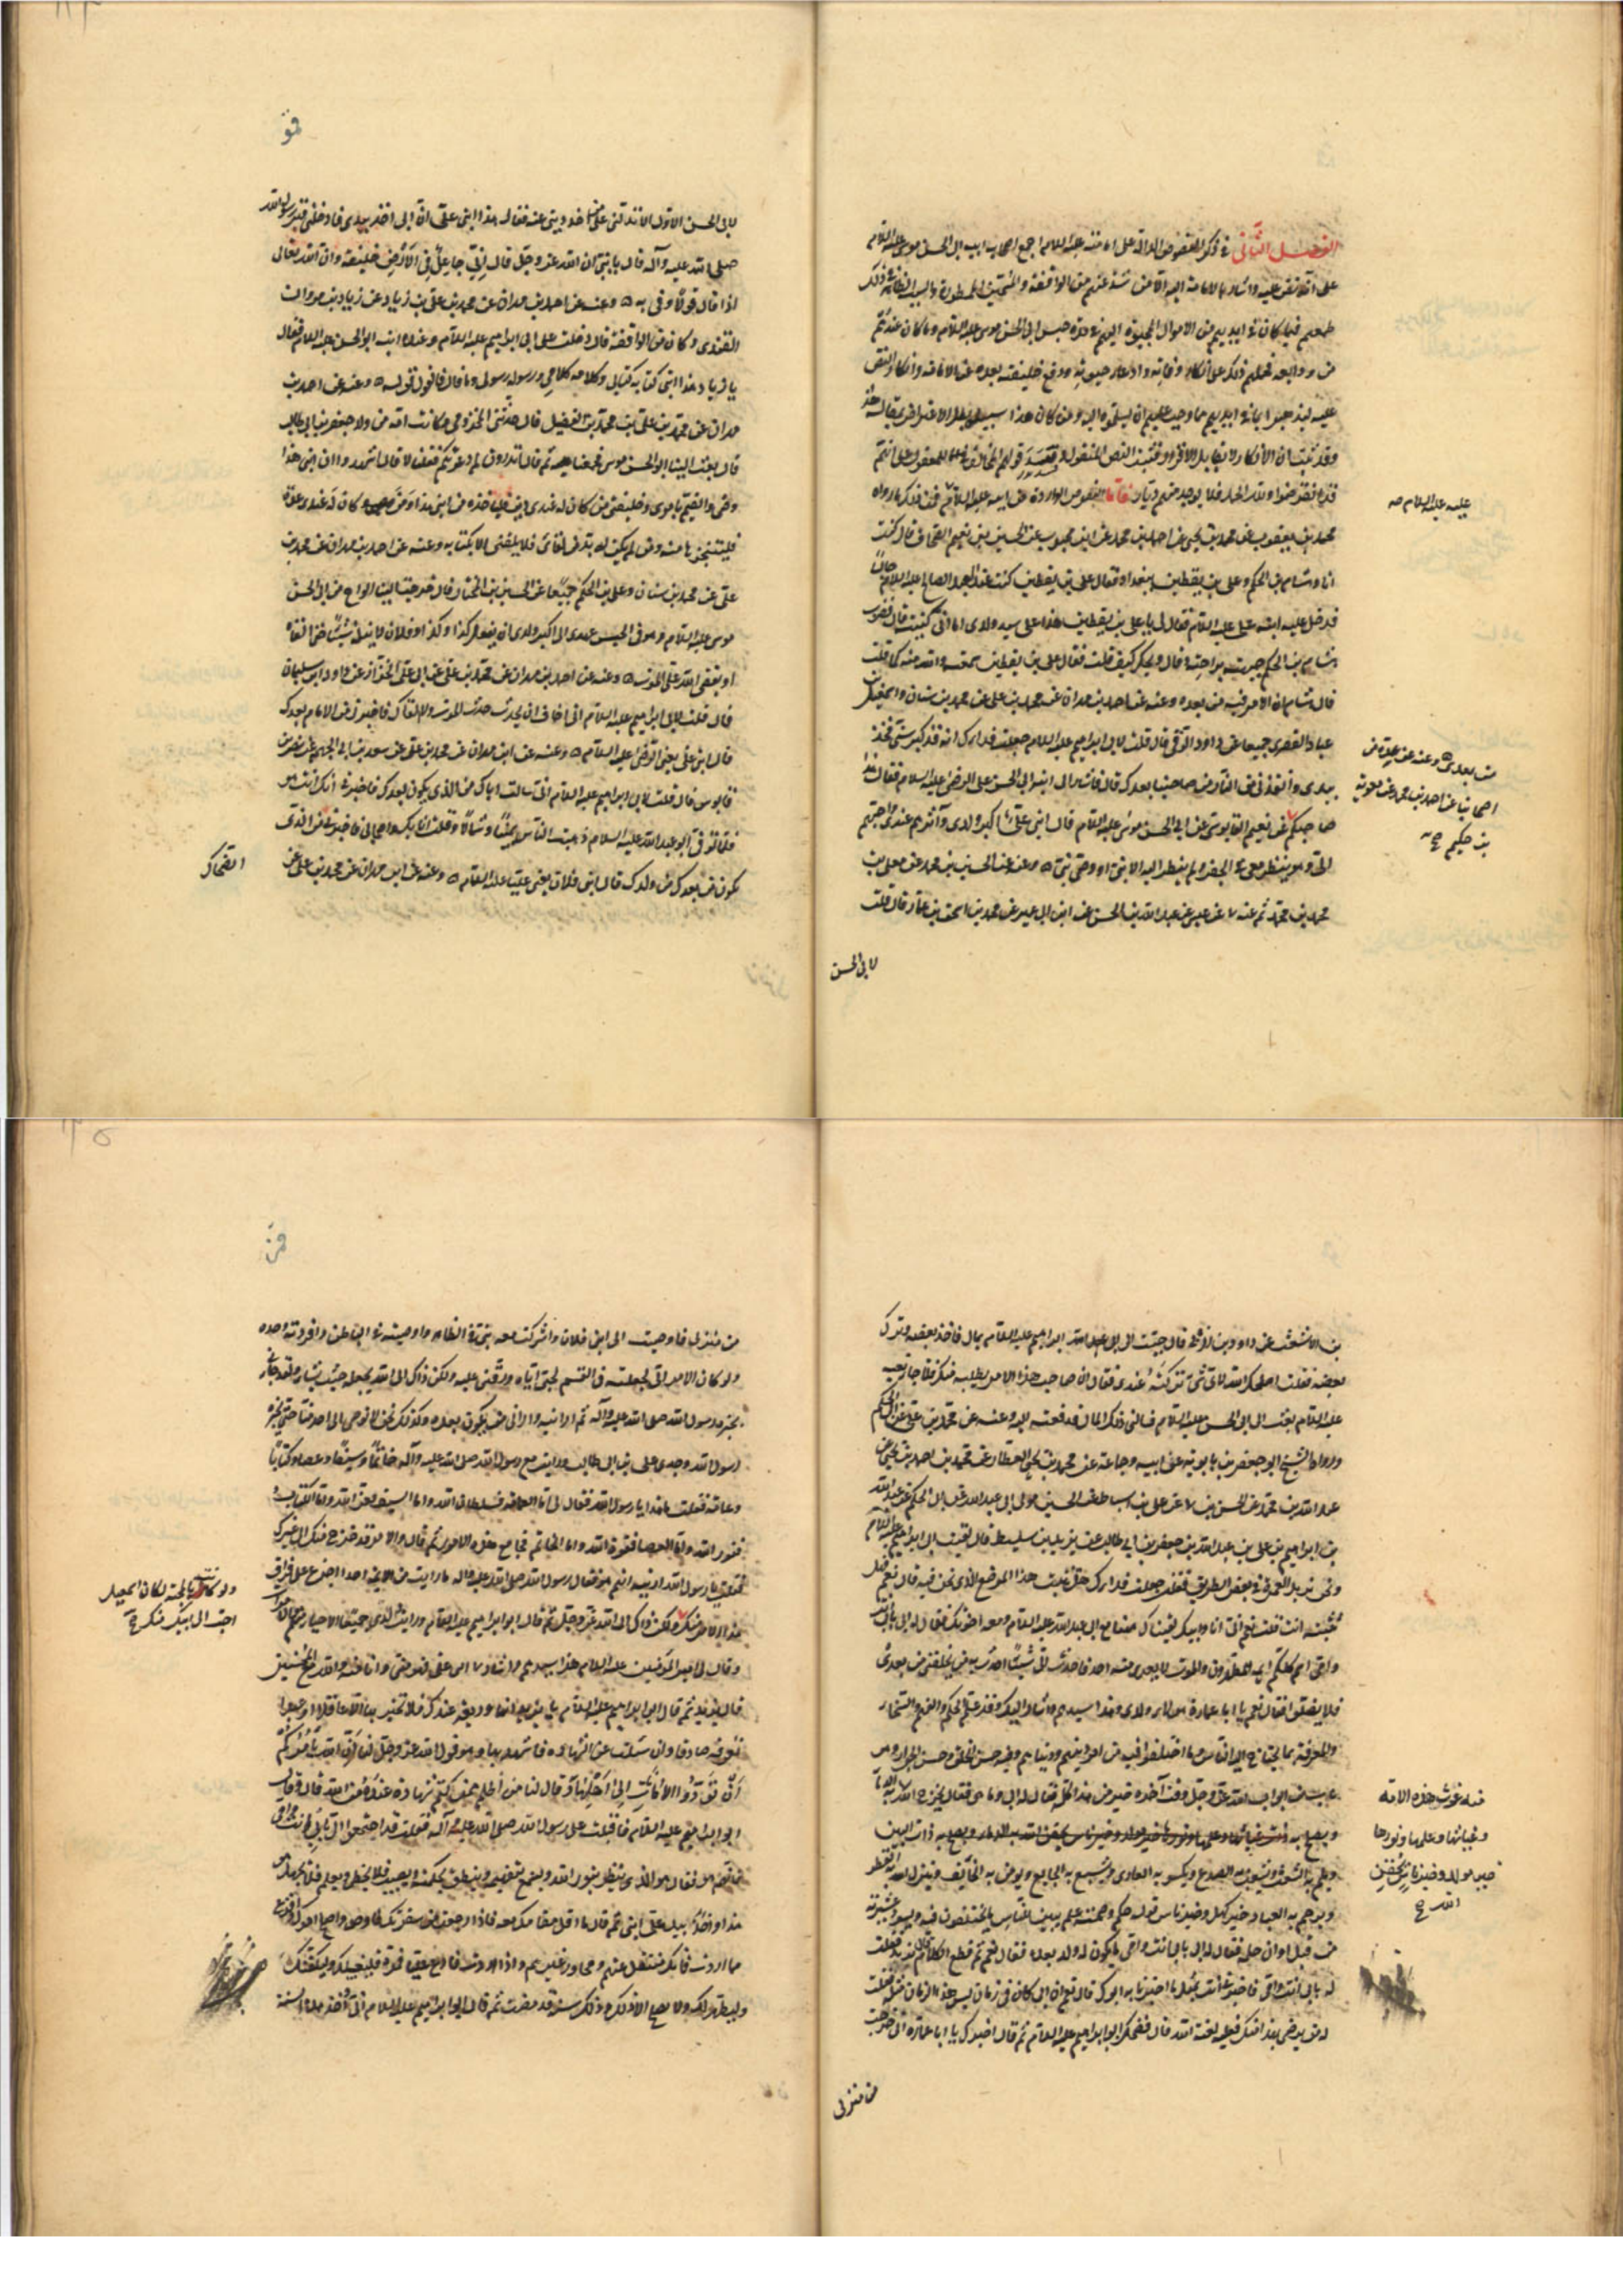 الفصل الثاني في ذكر النصوص الدالة على امامته عليه السلام اجمع اصحاب ابيه ابي الحسن موسى عليه السلام
على انه نص عليه واشار بالامامة اليه الا من شذ عنهم من الواقفة والسبب الظاهر في ذلك
طمعهم فيما كان في ايديهم من الاموال اليهم في مدة حبس ابي الحسن موسى عليه السلام وما كان عندهم
من ودايعه فحملهم ذلك على انكار وفاته وادعاء حيوته ودفع خليفته بعده عن الامامة وانكار النص
عليه ليذهبوا بما في ايديهم مما وجب عليهم ان يسلموه اليه ومن كان هذا سبيله بطل الاعتراض بمقاله هذا
قد انقرضوا ولله الحمد فلا يوجد منهم ديار فاما النصوص الواردة عن ابيه عليه السلام فمن ذلك ما رواه
محمد بن يعقوب عن محمد بن يحيى عن احمد بن محمد عن ابن محبوب عن الحسين بن نعيم الصحاف قال كنت
انا وهشام بن الحكم وعلي بن يقطين ببغداد فقال علي بن يقطين كنت عند العبد الصالح عليه السلام جالسا
فدخل عليه ابنه علي عليه السلام فقال لي يا علي بن يقطين هذا علي سيد ولدي اما اني كنيتي قال فضرب
هشام بن الحكم جبهته براحته فقال ويحك كيف قلت فقال علي بن يقطين سمعت والله منه كما قلت
قال هشام ان الامر فيه من بعده وعنه عن احمد بن مهران عن محمد بن علي عن محمد بن سنان واسمعيل بن
عباد القصري جميعا عن داود الرقي قال قلت لابي ابراهيم عليه السلام جعلت فداك انه قد كبر سني فخذ
بيدي وانقذني من النار من صاحبنا بعدك قال فاشار الى ابنه ابي الحسن علي الرضا عليه السلام فقال هذا
صاحبكم عن نعيم القابوسي عن ابي الحسن موسى عليه السلام قال ابني علي اكبر ولدي وآثرهم عندي واحبهم
الي وهو ينظر معي في الجفر لم ينظر اليه الا نبي او وصي نبي وعنه عن الحسين بن محمد عن معلى بن
محمد بن محمد عن عبد الله بن الحسن عن ابن ابي عمير عن محمد بن اسحق بن عمار قال قلت
لابي الحسن
عليه عليه السلام صح
من بعدي وعنه عن عدة من
اصحابنا عن احمد بن محمد عن معوية
بن حكيم صح
لابي الحسن الاول الا تدلني على من آخذ ديني عنه فقال هذا ابني علي ان ابي اخذ بيدي فادخلني قبر رسول الله
صلى الله عليه وآله قال يا بني ان الله عز وجل قال اني جاعل في الارض خليفة وان الله تعالى
اذا قال قولا وفى به وعنه عن احمد بن مهران عن محمد بن علي عن زياد بن مروان
القندي وكان من الواقفة قال دخلت على ابي ابراهيم عليه السلام وعنده ابنه ابو الحسن عليه السلام فقال
يا زياد هذا ابني كتابه كتابي وكلامه كلامي ورسوله رسولي وما قال فالقول قوله وعنه عن احمد بن
مهران عن محمد بن علي عن محمد بن الفضيل قال حدثني المخزومي وكانت امه من ولد جعفر بن ابي طالب
قال بعث الينا ابو الحسن موسى فجمعنا ثم قال اتدرون لم دعوتكم فقلنا لا قال اشهدوا ان ابني هذا
وصيي والقيم بامري وخليفتي من كان له عندي دين فلياخذه من ابني هذا ومن كان له عندي عدة
فليتنجزها منه ومن لم يكن له بد من لقائي فلا يلقني الا بكتابه وعنه عن احمد بن مهران عن محمد بن
علي عن محمد بن سنان وعلي بن الحكم جميعا عن الحسين بن المختار قال خرجت الينا الواح من ابي الحسن
موسى عليه السلام وهو في الحبس عهدي الى اكبر ولدي ان يفعل كذا وكذا وفلان لا تنله شيئا حتى القاك
او يقضي الله علي الموت وعنه عن احمد بن مهران عن محمد بن علي عن ابي علي الخزاز عن داود بن سليمان
قال قلت لابي ابراهيم عليه السلام اني اخاف ان يحدث حدث الموت ولا القاك فاخبرني من الامام بعدك
قال ابني علي يعني الرضا عليه السلام وعنه عن ابن مهران عن محمد بن علي عن سعيد بن ابي الجهم عن نصر بن
قابوس قال قلت لابي ابراهيم عليه السلام اني سالت اباك من الذي يكون بعدك فاخبرني انك انت هو
فلما توفي ابو عبد الله عليه السلام ذهبت الناس يمينا وشمالا وقلت انا بك واصحابي فاخبرني من الذي
يكون من بعدك من ولدك قال ابني فلان يعني عليا عليه السلام وعنه عن ابن مهران عن محمد بن علي عن
الضحاك
بن الاشعث عن داود بن زربي قال جئت الى ابي ابراهيم عليه السلام بمال فاخذ بعضه وترك
بعضه فقلت اصلحك الله لاي شيء تركته عندي فقال ان صاحب هذا الامر يطلبه منك فلما جاء نعيه
عليه السلام بعث الي ابو الحسن عليه السلام فسالني ذلك المال فدفعته اليه وعنه عن محمد بن علي عن ابي الحكم
ورواه الشيخ ابو جعفر بن بابويه عن ابيه وجماعة عن محمد بن يحيى العطار عن محمد بن احمد بن يحيى عن
عبد الله بن محمد عن الحسن بن علي بن اسباط عن الحسين مولى ابي عبد الله عن ابي الحكم عن عبد الله
بن ابراهيم بن علي بن عبد الله بن جعفر بن ابي طالب عن يزيد بن سليط قال لقيت ابا ابراهيم عليه السلام
ونحن نريد العمرة في بعض الطريق فقلت جعلت فداك هل تثبت هذا الموضع الذي نحن فيه قال نعم فهل
تثبته انت قلت نعم اني انا وابي لقيناك ههنا مع ابي عبد الله عليه السلام ومعه اخوتك فقال له ابي بابي انت
وامي انتم كلكم ائمة مطهرون والموت لا يعرى منه احد فاحدث الي شيئا احدث به من يخلفني من بعدي
فلا يضلوا فقال نعم يا ابا عمارة هؤلاء ولدي وهذا سيدهم واشار اليك وقد علم الحكم والفهم والسخاء
والمعرفة بما يحتاج اليه الناس وما اختلفوا فيه من امر دينهم ودنياهم وفيه حسن الخلق وحسن الجوار وهو
باب من ابواب الله عز وجل وفيه آخرة خير من هذا كله فقال له ابي وما هي فقال يخرج الله منه
ويلم به الشعث ويشعب به الصدع ويكسو به العاري ويشبع به الجايع ويؤمن به الخائف وينزل الله به القطر
ويرحم به العباد خير كهل وخير ناشئ قوله حكم وصمته علم يبين للناس ما يختلفون فيه ويسود عشيرته
من قبل اوان حلمه فقال له ابي بابي انت وامي ما يكون له ولد بعده فقال نعم ثم قطع الكلام قال يزيد فقلت
له بابي انت وامي فاخبرني انت بمثل ما اخبرنا به ابوك قال نعم ان ابي كان في زمان ليس هذا الزمان مثله فقلت
له من يرضى بهذا منك فعليه لعنة الله قال فضحك ابو ابراهيم عليه السلام ثم قال اخبرك يا ابا عمارة اني خرجت
من منزلي
منه غوث هذه الامة
وغياثها وعلمها ونورها
خير مولود وخير ناشئ يحقن
الله صح
من منزلي فاوصيت الى ابني فلان واشركت معه بني في الظاهر واوصيته في الباطن وافردته وحده
ولو كان الامر الي لجعلته في القسم لحبي اياه ورقتي عليه ولكن ذاك الى الله يجعله حيث يشاء ولقد جاءني
بخبره رسول الله صلى الله عليه وآله ثم ارانيه واراني من يكون بعده وكذلك نحن لا نوصي الى احد منا حتى يخبره
رسول الله وجدي علي بن ابي طالب ورايت مع رسول الله صلى الله عليه وآله خاتما وسيفا وعصا وكتابا
وعمامة فقلت ما هذا يا رسول الله فقال لي اما العمامة فسلطان الله واما السيف فعز الله واما الكتاب
فنور الله واما العصا فقوة الله واما الخاتم فجامع هذه الامور ثم قال والامر قد خرج منك الى غيرك
فقلت يا رسول الله ارنيه ايهم هو فقال رسول الله صلى الله عليه وآله ما رايت من الائمة احدا اجزع على فراق
هذا الامر منك ولكن ذاك الى الله عز وجل ثم قال ابو ابراهيم عليه السلام ورايت ولدي جميعا الاحياء منهم والاموات
وقال لي امير المؤمنين عليه السلام هذا سيدهم واشار الى ابني علي فهو مني وانا منه والله مع المحسنين
قال يزيد ثم قال ابو ابراهيم عليه السلام يا يزيد انها وديعة عندك فلا تخبر بها الا عاقلا او عبدا
تعرفه صادقا وان سئلت عن الشهادة فاشهد بها وهو قول الله عز وجل لنا ان الله يامركم
ان تؤدوا الامانات الى اهلها وقال لنا من اظلم ممن كتم شهادة عنده من الله قال وقال
ابو ابراهيم عليه السلام فاقبلت على رسول الله صلى الله عليه وآله فقلت قد اجتمعوا الي بابي انت وامي
فايهم هو فقال هو الذي ينظر بنور الله ويسمع بتفهيمه وينطق بحكمته ويصيب فلا يخطئ ويعلم فلا يجهل هو
هذا واخذ بيد علي ابني ثم قال ما اقل مقامك معه فاذا رجعت من سفرتك فاوص واصلح امرك وافرغ
مما اردت فانك منتقل عنهم ومجاور غيرهم واذا اردت فادع عليا فمره فليغسلك وليكفنك
وليتطهر لك ولا يصلح الا ذلك وذلك سنة قد مضت ثم قال ابو ابراهيم عليه السلام اني اوخذ هذه السنة
ولو كانت بالمحبة لكان اسمعيل
احب الى ابيك منك صح